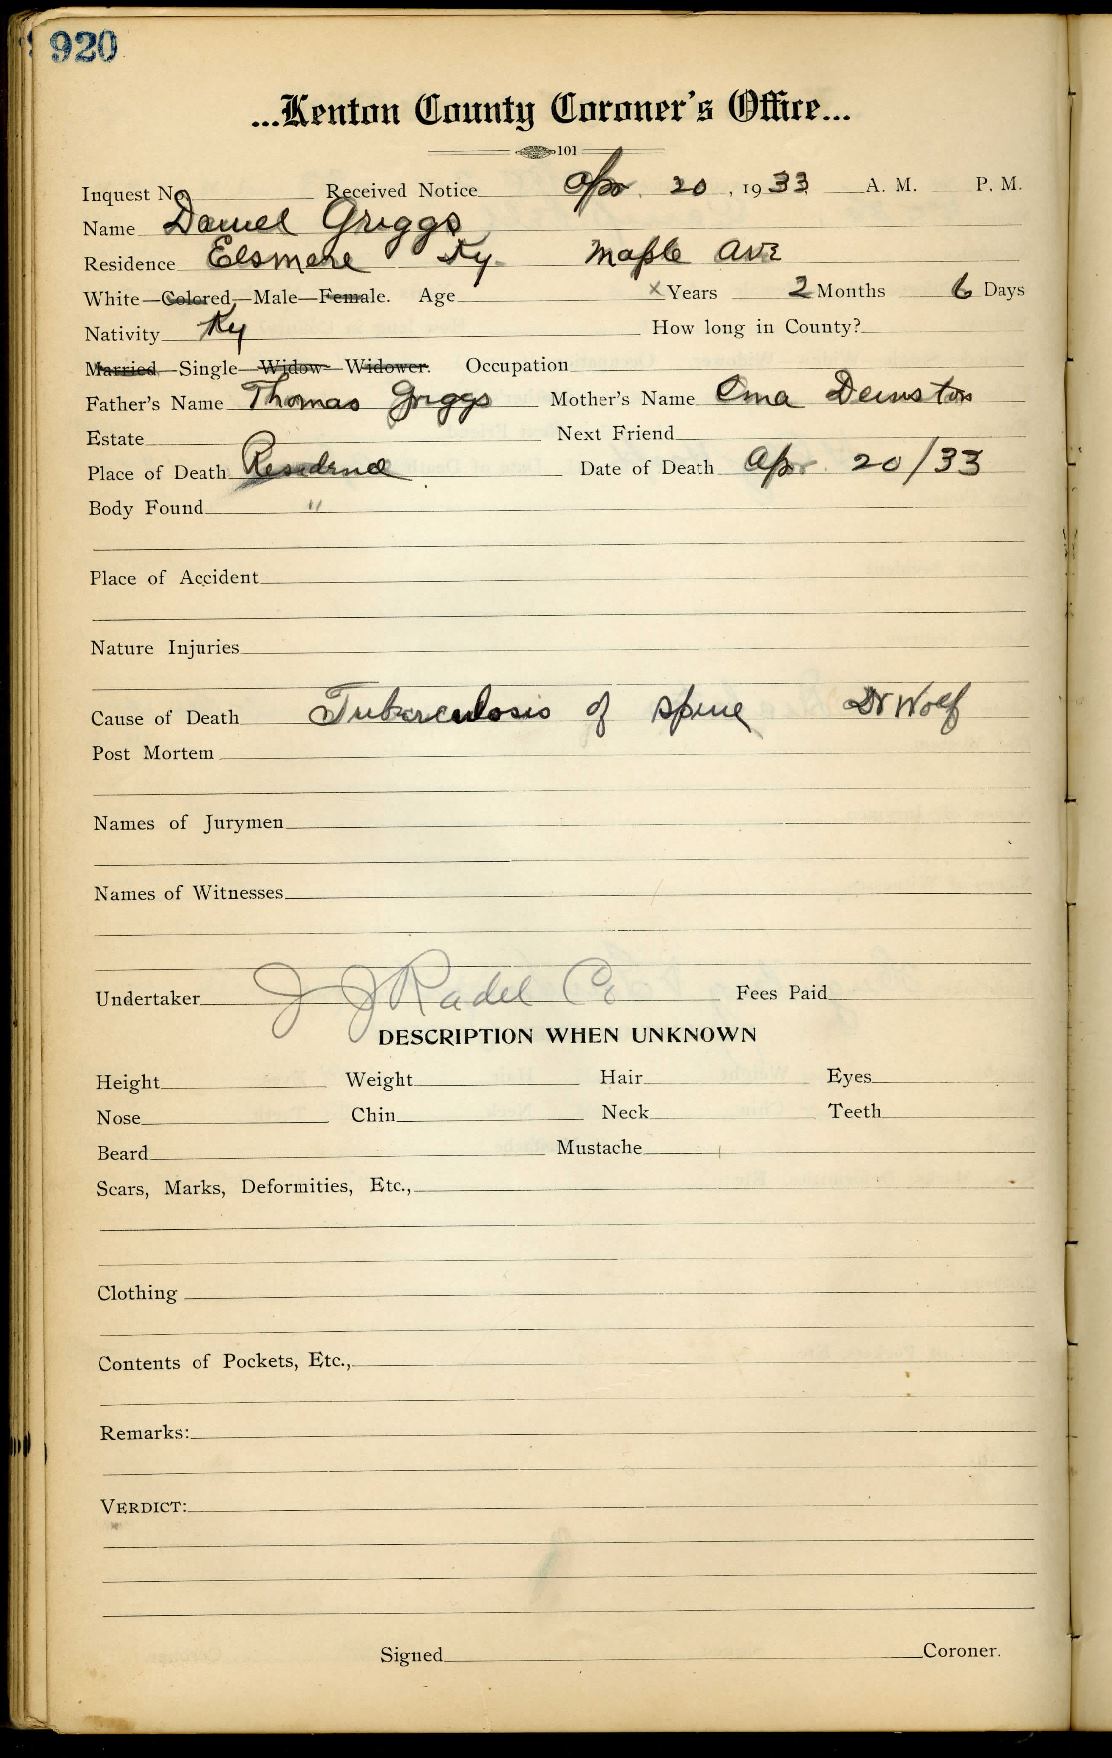 920
...Kenton County Coroner's Office...
101
Inquest No. Received Notice Apr 20, 1933 A. M. P. M.
Name Daniel Griggs
Residence Elsmere Ky. Maple Ave
White—Colored—Male—Female. Age x Years 2 Months 6 Days
Nativity Ky How long in County?
Married—Single—Widow—Widower. Occupation
Father's Name Thomas Griggs Mother's Name
Estate Next Friend
Place of Death Residence Date of Death Apr. 20/33
Body Found "
Place of Accident
Nature Injuries
Cause of Death Tuberculosis of spine Dr Wolf
Post Mortem
Names of Jurymen
Names of Witnesses
Undertaker J J Radel Co Fees Paid
DESCRIPTION WHEN UNKNOWN
Height Weight Hair Eyes
Nose Chin Neck Teeth
Beard Mustache
Scars, Marks, Deformities, Etc.,
Clothing
Contents of Pockets, Etc.,
Remarks:
VERDICT:
Signed Coroner.